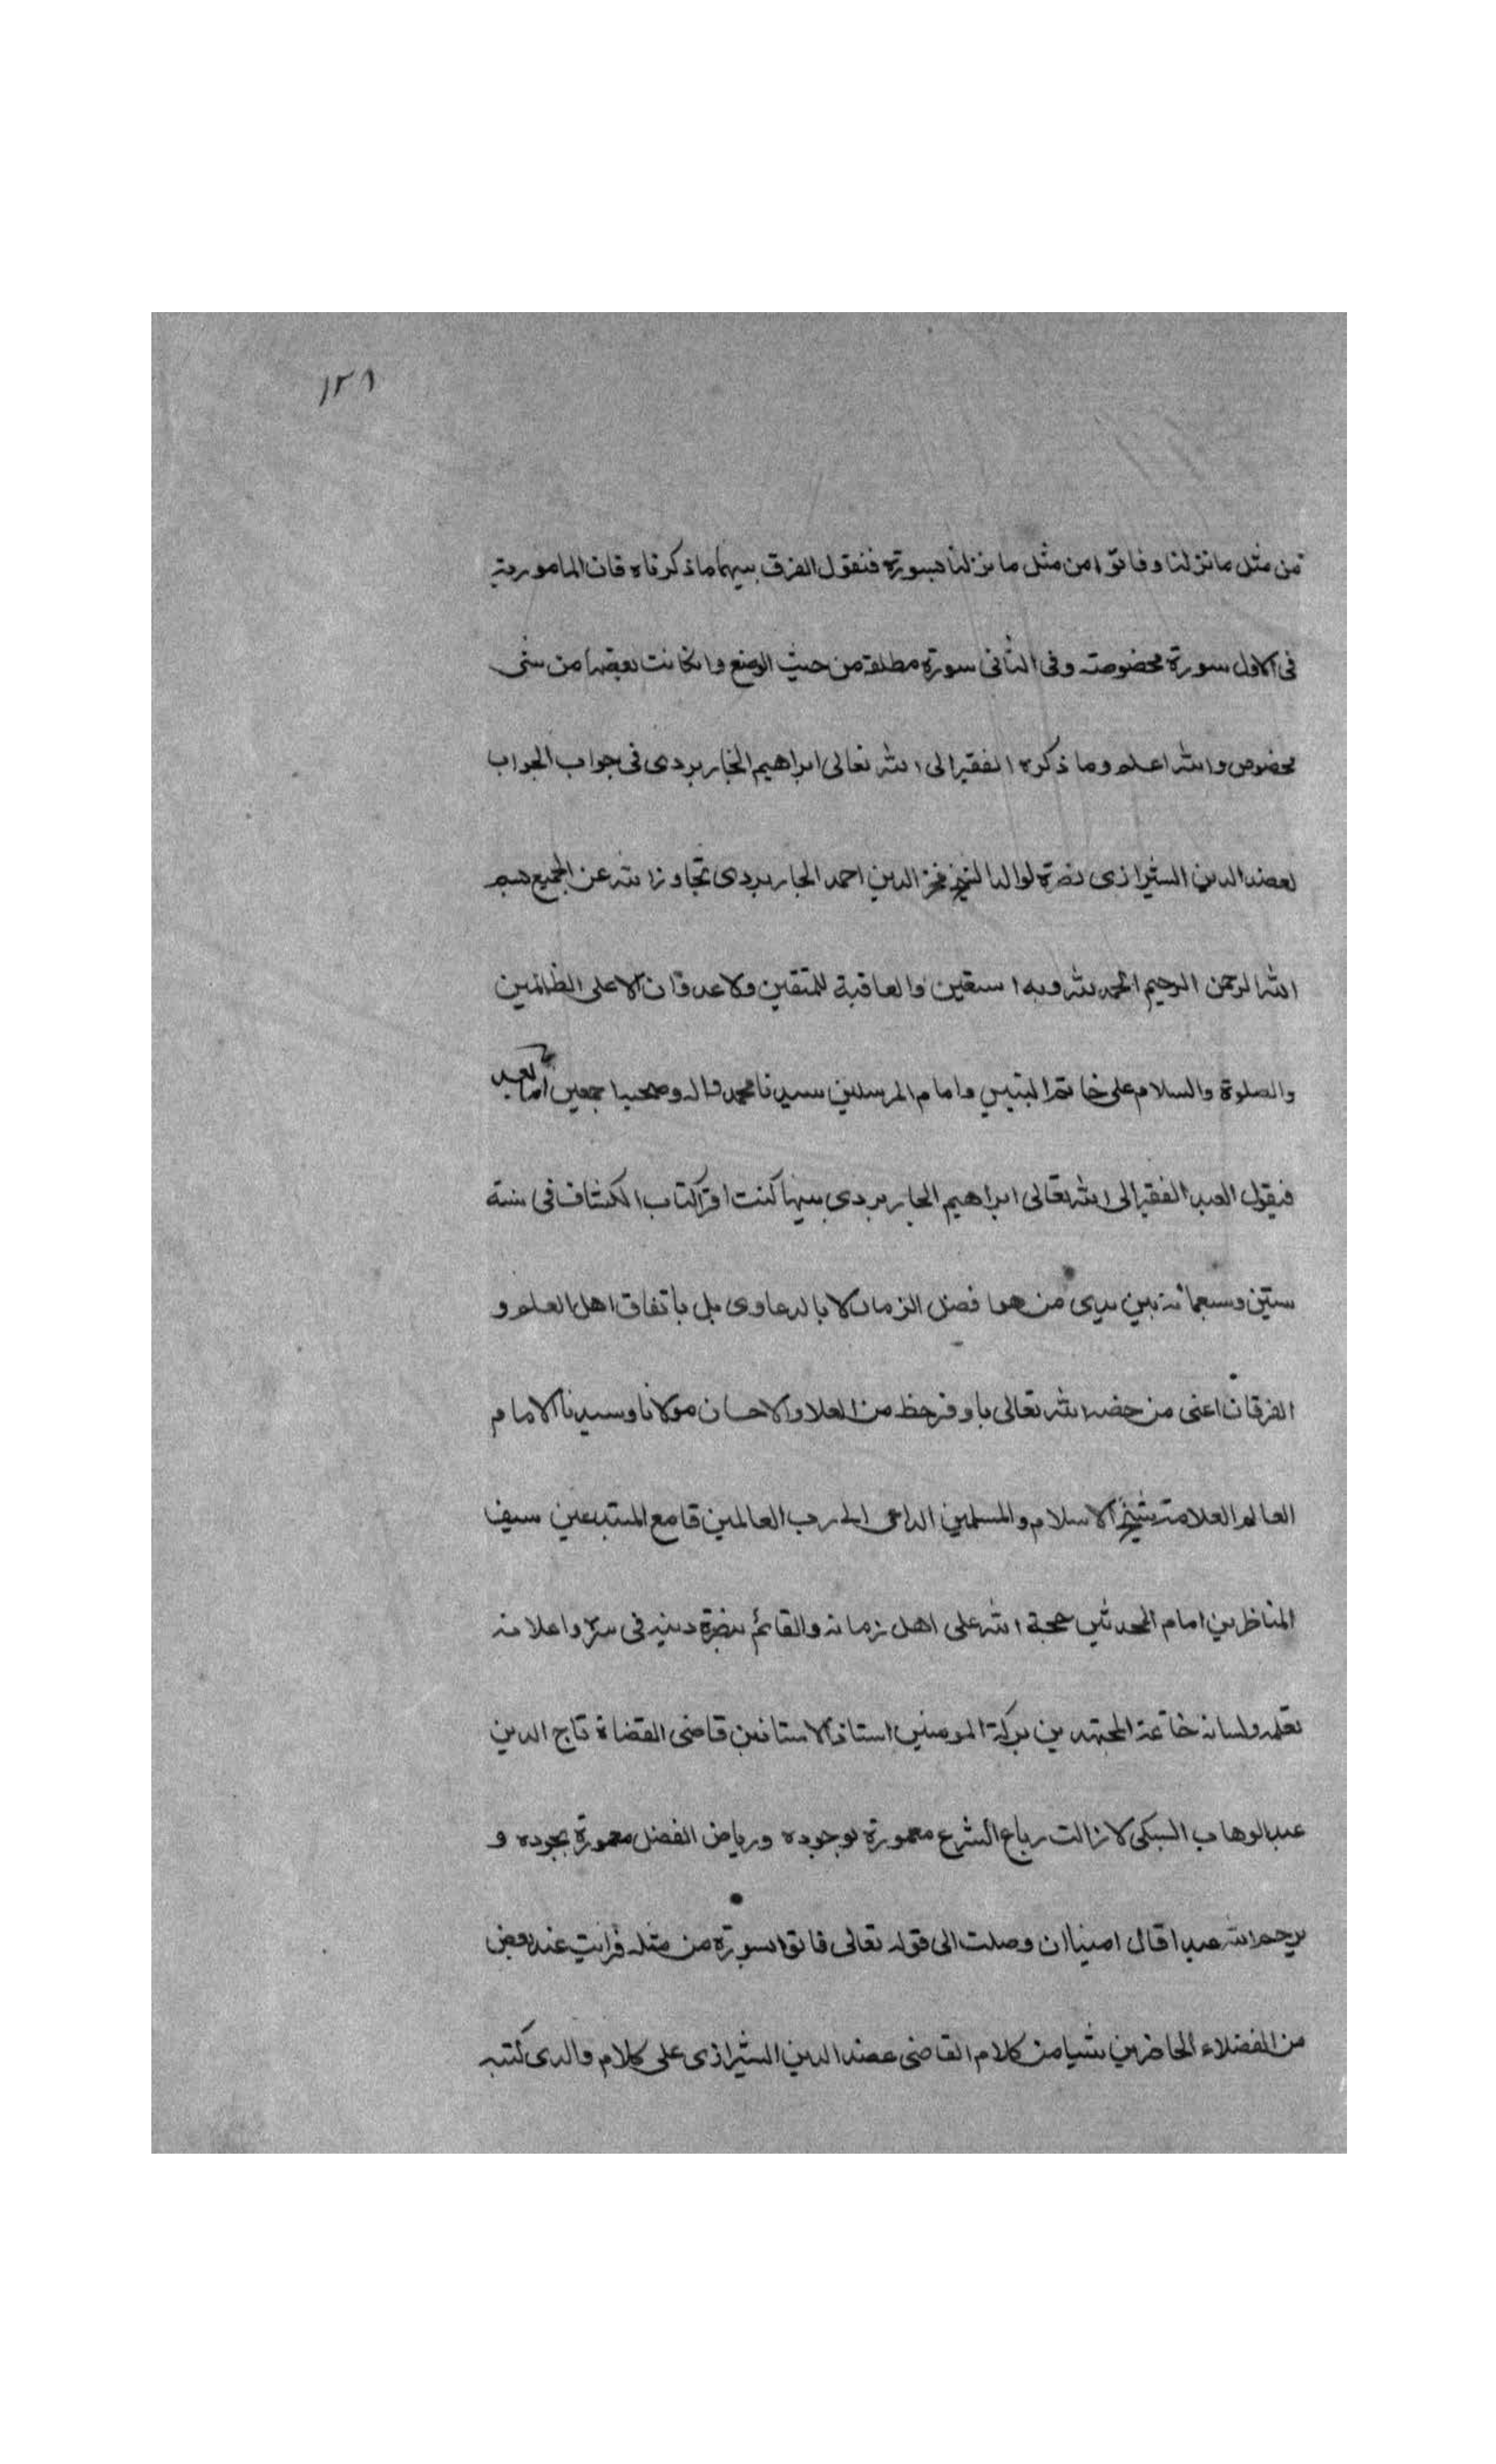 ١٢٨
من مثل ما نزلنا وفاتوا من مثل ما نزلنا بسورة فنقول الفرق بينهما ما ذكرناه فان المامور به
فى الاول سورة مخصوصة وفى الثانى سورة مطلقة من حيث الوضع وان كانت بعضها من شى
مخصوص والله اعلم وما ذكره الفقير الى الله تعالى ابراهيم الجاربردى فى جواب الجواب
لعضد الدين الشيرازى نصرة لوالده الشيخ فخر الدين احمد الجاربردى تجاوز الله عن الجميع بسم
الله الرحمن الرحيم الحمد لله وبه استعين والعاقبة للمتقين ولا عدوان الا على الظالمين
والصلوة والسلام على خاتم النبيين وامام المرسلين سيدنا محمد واله وصحبه اجمعين اما بعد
فيقول العبد الفقير الى الله تعالى ابراهيم الجاربردى بينما كنت اقرا كتاب الكشاف فى سنة
ستين وسبعمائة بين يدى من هو افضل الزمان لا بالدعاوى بل باتفاق اهل العلم و
الفرقان اعنى من خصه الله تعالى باوفر حظ من العلا والاحسان مولانا وسيدنا الامام
العالم العلامة شيخ الاسلام والمسلمين الداعى الى رب العالمين قامع المبتدعين سيف
المناظرين امام المحدثين حجة الله على اهل زمانه والقائم بنصرة دينه فى سره واعلانه
بقلمه ولسانه خاتمة المجتهدين بركة المومنين استاذ الاستاذين قاضى القضاة تاج الدين
عبد الوهاب السبكى لا زالت رباع الشرع معمورة بوجوده ورياض الفضل معمورة بجوده و
يرحم الله عبدا قال امينا ان وصلت الى قوله تعالى فاتوا بسورة من مثله فرايت عند بعض
من الفضلاء الحاضرين شيا من كلام القاضى عضد الدين الشيرازى على كلام والدى كتبه